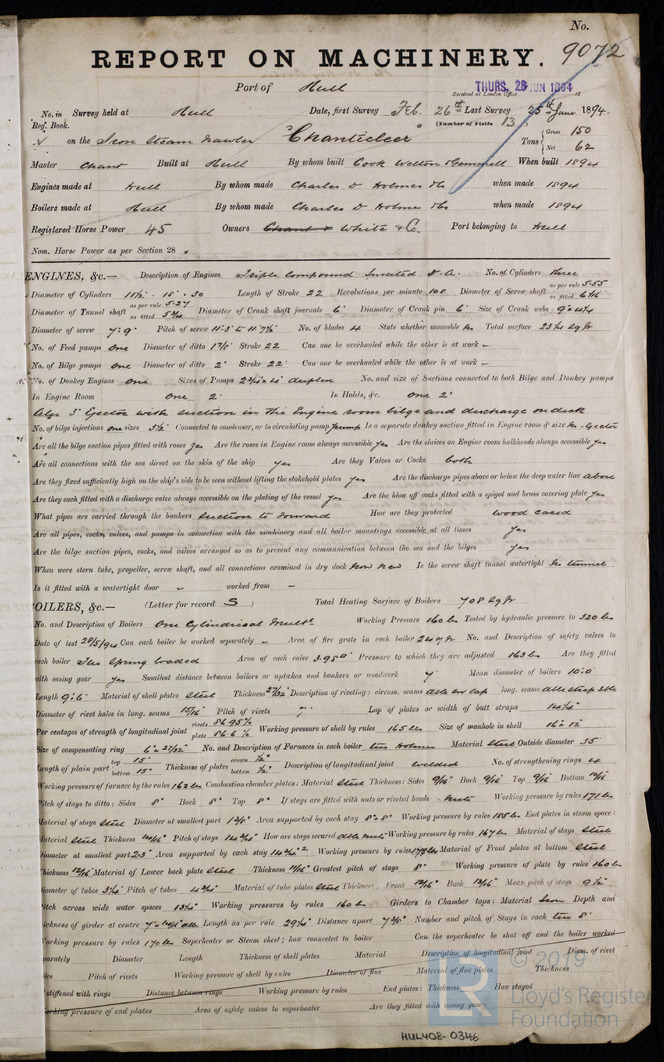 No.
REPORT ON MACHINERY. 9072
Port of Hull
THURS. 28 JUN 1894
Received at London Office 18
No. in Survey held at Hull Date, first Survey Feb. 26th Last Survey 25th June 1894
Reg. Book. (Number of Visits 13)
on the Iron Steam Trawler "Chanticleer" Tons { Gross 150 Net 62
Master Chant Built at Hull By whom built Cook Welton & Gemmell When built 1894
Engines made at Hull By whom made Charles D Holmes & Co when made 1894
Boilers made at Hull By whom made Charles D Holmes & Co when made 1894
Registered Horse Power 45 Owners White & Co. Port belonging to Hull
Nom. Horse Power as per Section 28
ENGINES, &c.— Description of Engines Triple Compound Inverted D.A. No. of Cylinders three
Diameter of Cylinders 11½" · 18" · 30 Length of Stroke 22 Revolutions per minute 108 Diameter of Screw shaft as per rule 5.55 as fitted
Diameter of Tunnel shaft as per rule 5.27 as fitted Diameter of Crank shaft journals 6" Diameter of Crank pin 6" Size of Crank webs
Diameter of screw 7'.9" Pitch of screw No. of blades 4 State whether moveable no Total surface
No. of Feed pumps one Diameter of ditto Stroke 22 Can one be overhauled while the other is at work –
No. of Bilge pumps one Diameter of ditto 2" Stroke 22" Can one be overhauled while the other is at work –
No. of Donkey Engines one Sizes of Pumps duplex No. and size of Suctions connected to both Bilge and Donkey pumps
In Engine Room one 2" In Holds, &c. one 2"
Also 3" Ejector with suction in the Engine room bilge and discharge on deck
No. of bilge injections one sizes 3½" Connected to condenser, or to circulating pump pump Is a separate donkey suction fitted in Engine room & size no - Ejector
Are all the bilge suction pipes fitted with roses yes Are the roses in Engine room always accessible yes Are the sluices on Engine room bulkheads always accessible yes
Are all connections with the sea direct on the skin of the ship yes Are they Valves or Cocks both
Are they fixed sufficiently high on the ship's side to be seen without lifting the stokehold plates yes Are the discharge pipes above or below the deep water line above
Are they each fitted with a discharge valve always accessible on the plating of the vessel yes Are the blow off cocks fitted with a spigot and brass covering plate yes
What pipes are carried through the bunkers suction to forward How are they protected wood cased
Are all pipes, cocks, valves, and pumps in connection with the machinery and all boiler mountings accessible at all times yes
Are the bilge suction pipes, cocks, and valves arranged so as to prevent any communication between the sea and the bilges yes
When were stern tube, propeller, screw shaft, and all connections examined in dry dock now new Is the screw shaft tunnel watertight no tunnel
Is it fitted with a watertight door – worked from –
BOILERS, &c.— (Letter for record S) Total Heating Surface of Boilers 708 sq ft
No. and Description of Boilers One Cylindrical Multr Working Pressure 160 lbs Tested by hydraulic pressure to 320 lbs
Date of test 28/5/94 Can each boiler be worked separately – Area of fire grate in each boiler 24 sq ft No. and Description of safety valves to
each boiler Two Spring loaded Area of each valve 3.98" Pressure to which they are adjusted 163 lbs Are they fitted
with easing gear yes Smallest distance between boilers or uptakes and bunkers or woodwork Mean diameter of boilers 10'.0
Length 9'.6" Material of shell plates Steel Thickness 27/32" Description of riveting: circum. seams dble riv lap long. seams
Diameter of rivet holes in long. seams 15/16" Pitch of rivets Lap of plates or width of butt straps
Per centages of strength of longitudinal joint rivets plate Working pressure of shell by rules 165 lbs Size of manhole in shell 16" · 12"
Size of compensating ring No. and Description of Furnaces in each boiler two Holmes Material Steel Outside diameter 35
Length of plain part top 15" bottom 15" Thickness of plates crown ½" bottom ½" Description of longitudinal joint welded No. of strengthening rings
Working pressure of furnace by the rules Combustion chamber plates: Material Steel Thickness: Sides 9/16" Back 9/16" Top 9/16" Bottom
Pitch of stays to ditto: Sides 8" Back 8" Top 8" If stays are fitted with nuts or riveted heads nuts Working pressure by rules 171 lbs
Material of stays Steel Diameter at smallest part Area supported by each stay 8"·8" Working pressure by rules End plates in steam space:
Material Steel Thickness Pitch of stays How are stays secured Working pressure by rules 167 lbs Material of stays Steel
Diameter at smallest part Area supported by each stay Working pressure by rules Material of Front plates at bottom Steel
Thickness Material of Lower back plate Steel Thickness Greatest pitch of stays 8" Working pressure of plate by rules 160 lbs
Diameter of tubes Pitch of tubes Material of tube plates Steel Thickness: Front Back Mean pitch of stays
Pitch across wide water spaces Working pressures by rules 160 lbs Girders to Chamber tops: Material Iron Depth and
thickness of girder at centre Length as per rule Distance apart Number and pitch of Stays in each two 8"
Working pressure by rules 170 lbs Superheater or Steam chest; how connected to boiler Can the superheater be shut off and the boiler worked
separately Diameter Length Thickness of shell plates Material Description of longitudinal joint Diam. of rivet
holes Pitch of rivets Working pressure of shell by rules Diameter of flue Material of flue plates Thickness
If stiffened with rings Distance between rings Working pressure by rules End plates: Thickness How stayed
Working pressure of end plates Area of safety valves to superheater Are they fitted with easing gear
© 2019
Lloyd's Register
Foundation
LR
HUL408-0346